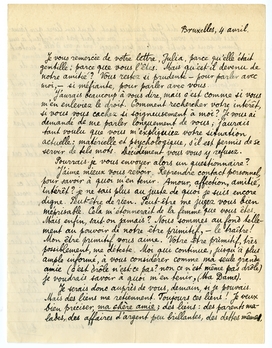 Bruxelles, 4 avril.
Je vous remercie de votre lettre, Julia, parce qu'elle était
gentille; parce que vous l'êtes. Mais qu'est-il devenu de
notre amitié? Vous restez si prudente - pour parler avec
moi, si méfiante, pour parler avec vous.
J'aurais beaucoup à vous dire, mais c'est comme si vous
m'en enleviez le droit. Comment rechercher votre intérêt,
si vous vous cachez si soigneusement à moi? Je vous ai
demandé de me parler longuement de vous; j'aurais
tant voulu que vous m'expliquiez votre situation
actuelle; matérielle et psychologique, s'il est permis de se
servir de tels mots. Décidément, vous vous y refusez.
Pourrais-je vous envoyer alors un questionnaire?
J'aime mieux vous revoir. Reprendre contact personnel,
pour savoir à quoi m'en tenir. Amour, affection, amitié,
intérêt? je ne sais plus au juste de quoi je suis encore
digne. Peut-être de rien. Peut-être me jugez-vous bien
méprisable. Cela m'étonnerait de la femme que vous êtes.
Mais enfin, sait-on jamais? Nous sommes au fond telle-
ment au pouvoir de notre être primitif, - le traître!
Mon être primitif vous aime. Votre être primitif, très
possiblement, me déteste. Moi, je continue, jusqu'à plus
ample informé, à vous considérer comme ma seule grande
amie (c'est drôle n'est-ce pas? non, ce n'est même pas drôle)
je voudrais savoir à quoi m'en tenir, (tha Dame).
Je serais donc auprès de vous, demain, si je pouvais.
Mais des liens me retiennent. Toujours ces liens! Je veux
bien préciser, ma chère amie: des liens: des parents ma-
lades, des affaires d'argent peu brillantes, des dettes même,